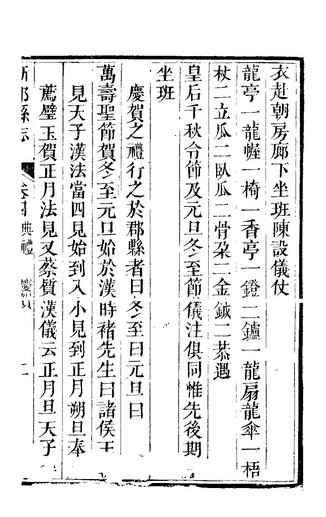 衣赴朝房廊下坐班陳設儀仗
龍亭一龍幄一椅一香亭一鐙二鑪一龍扇龍傘一梧
杖二立瓜二臥瓜二骨朶二金鉞二恭遇
皇后千秋令節及元旦冬至節儀注俱同惟先後期
坐班
慶賀之禮行之於郡縣者曰冬至曰元旦曰
萬壽聖節賀冬至元旦始於漢時褚先生曰諸侯王
見天子漢法當四見始到入小見到正月朔旦奉
薦璧玉賀正月法見又蔡質漢儀云正月旦天子
新都縣志
卷四
典禮
慶賀